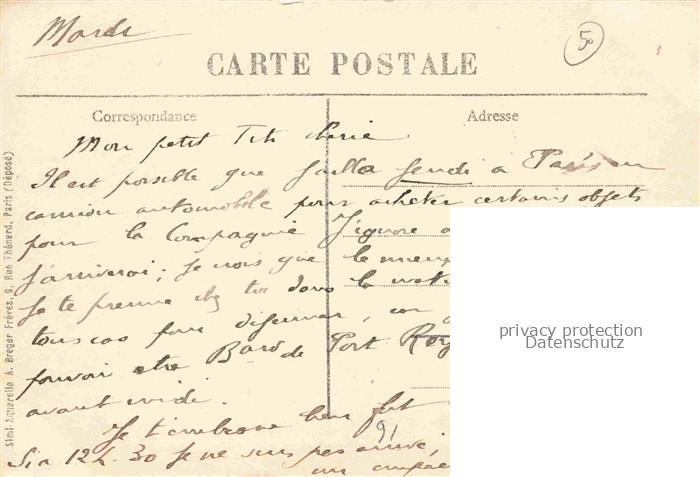 Mardi
50
CARTE POSTALE
Correspondance
Adresse
Mon petit Titi chérie
Il est possible que j'aille jeudi à Paris en
camion automobile pour acheter certains objets
pour la Compagnie J'ignore
j'arriverai; je crois que le
Je te prenne chez toi dans la
tous cas fais déjeuner, car
pouvoir être Bard de Port Roy
avant midi.
Je t'embrasse bien fort
91
Si à 12h.30 je ne suis pas arrivé,
un
Simi-Aquarelle A. Breger Frères, 9, Rue Thénard, Paris (Déposé)
privacy protection
Datenschutz